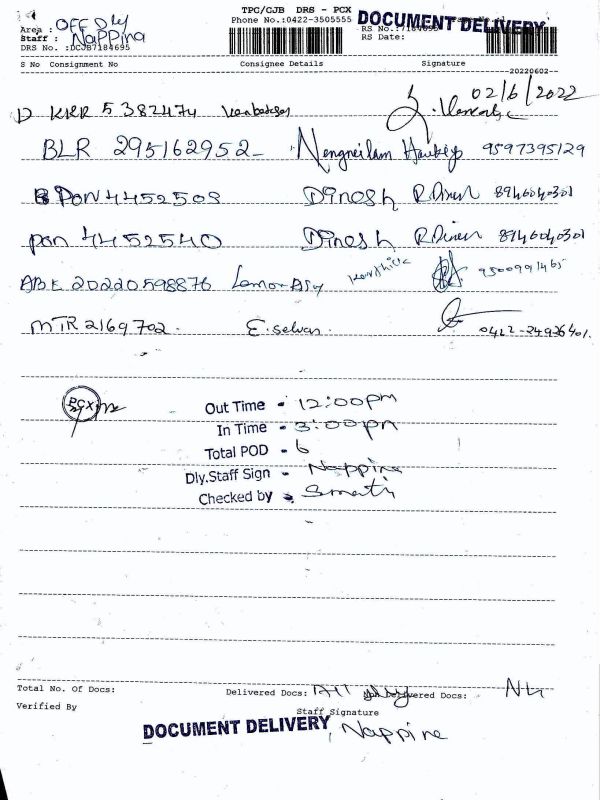 TPC/CJB DRS - PCX
Phone No.:0422-3505555 DOCUMENT DELIVERY
Area : OFF Dly
Staff : Nappina
RS Date:
DRS No. :DCJB7184695
S No Consignment No Consignee Details Signature
20220602
02/6/2022
KRR 5382474
BLR 295162952 9597395129
Pon 4452509 Dinesh R.Dinesh 8946040301
pon 4452540 Dinesh R.Dinesh 8946040301
ABE 20220598876
MTR 2169702 E.selvan
PCX
Out Time - 12:00pm
In Time - 3:00pm
Total POD - 6
Dly.Staff Sign - Nappina
Checked by
Total No. Of Docs: Delivered Docs: All Dly Docs: Nil
Verified By Staff Signature
DOCUMENT DELIVERY Nappina